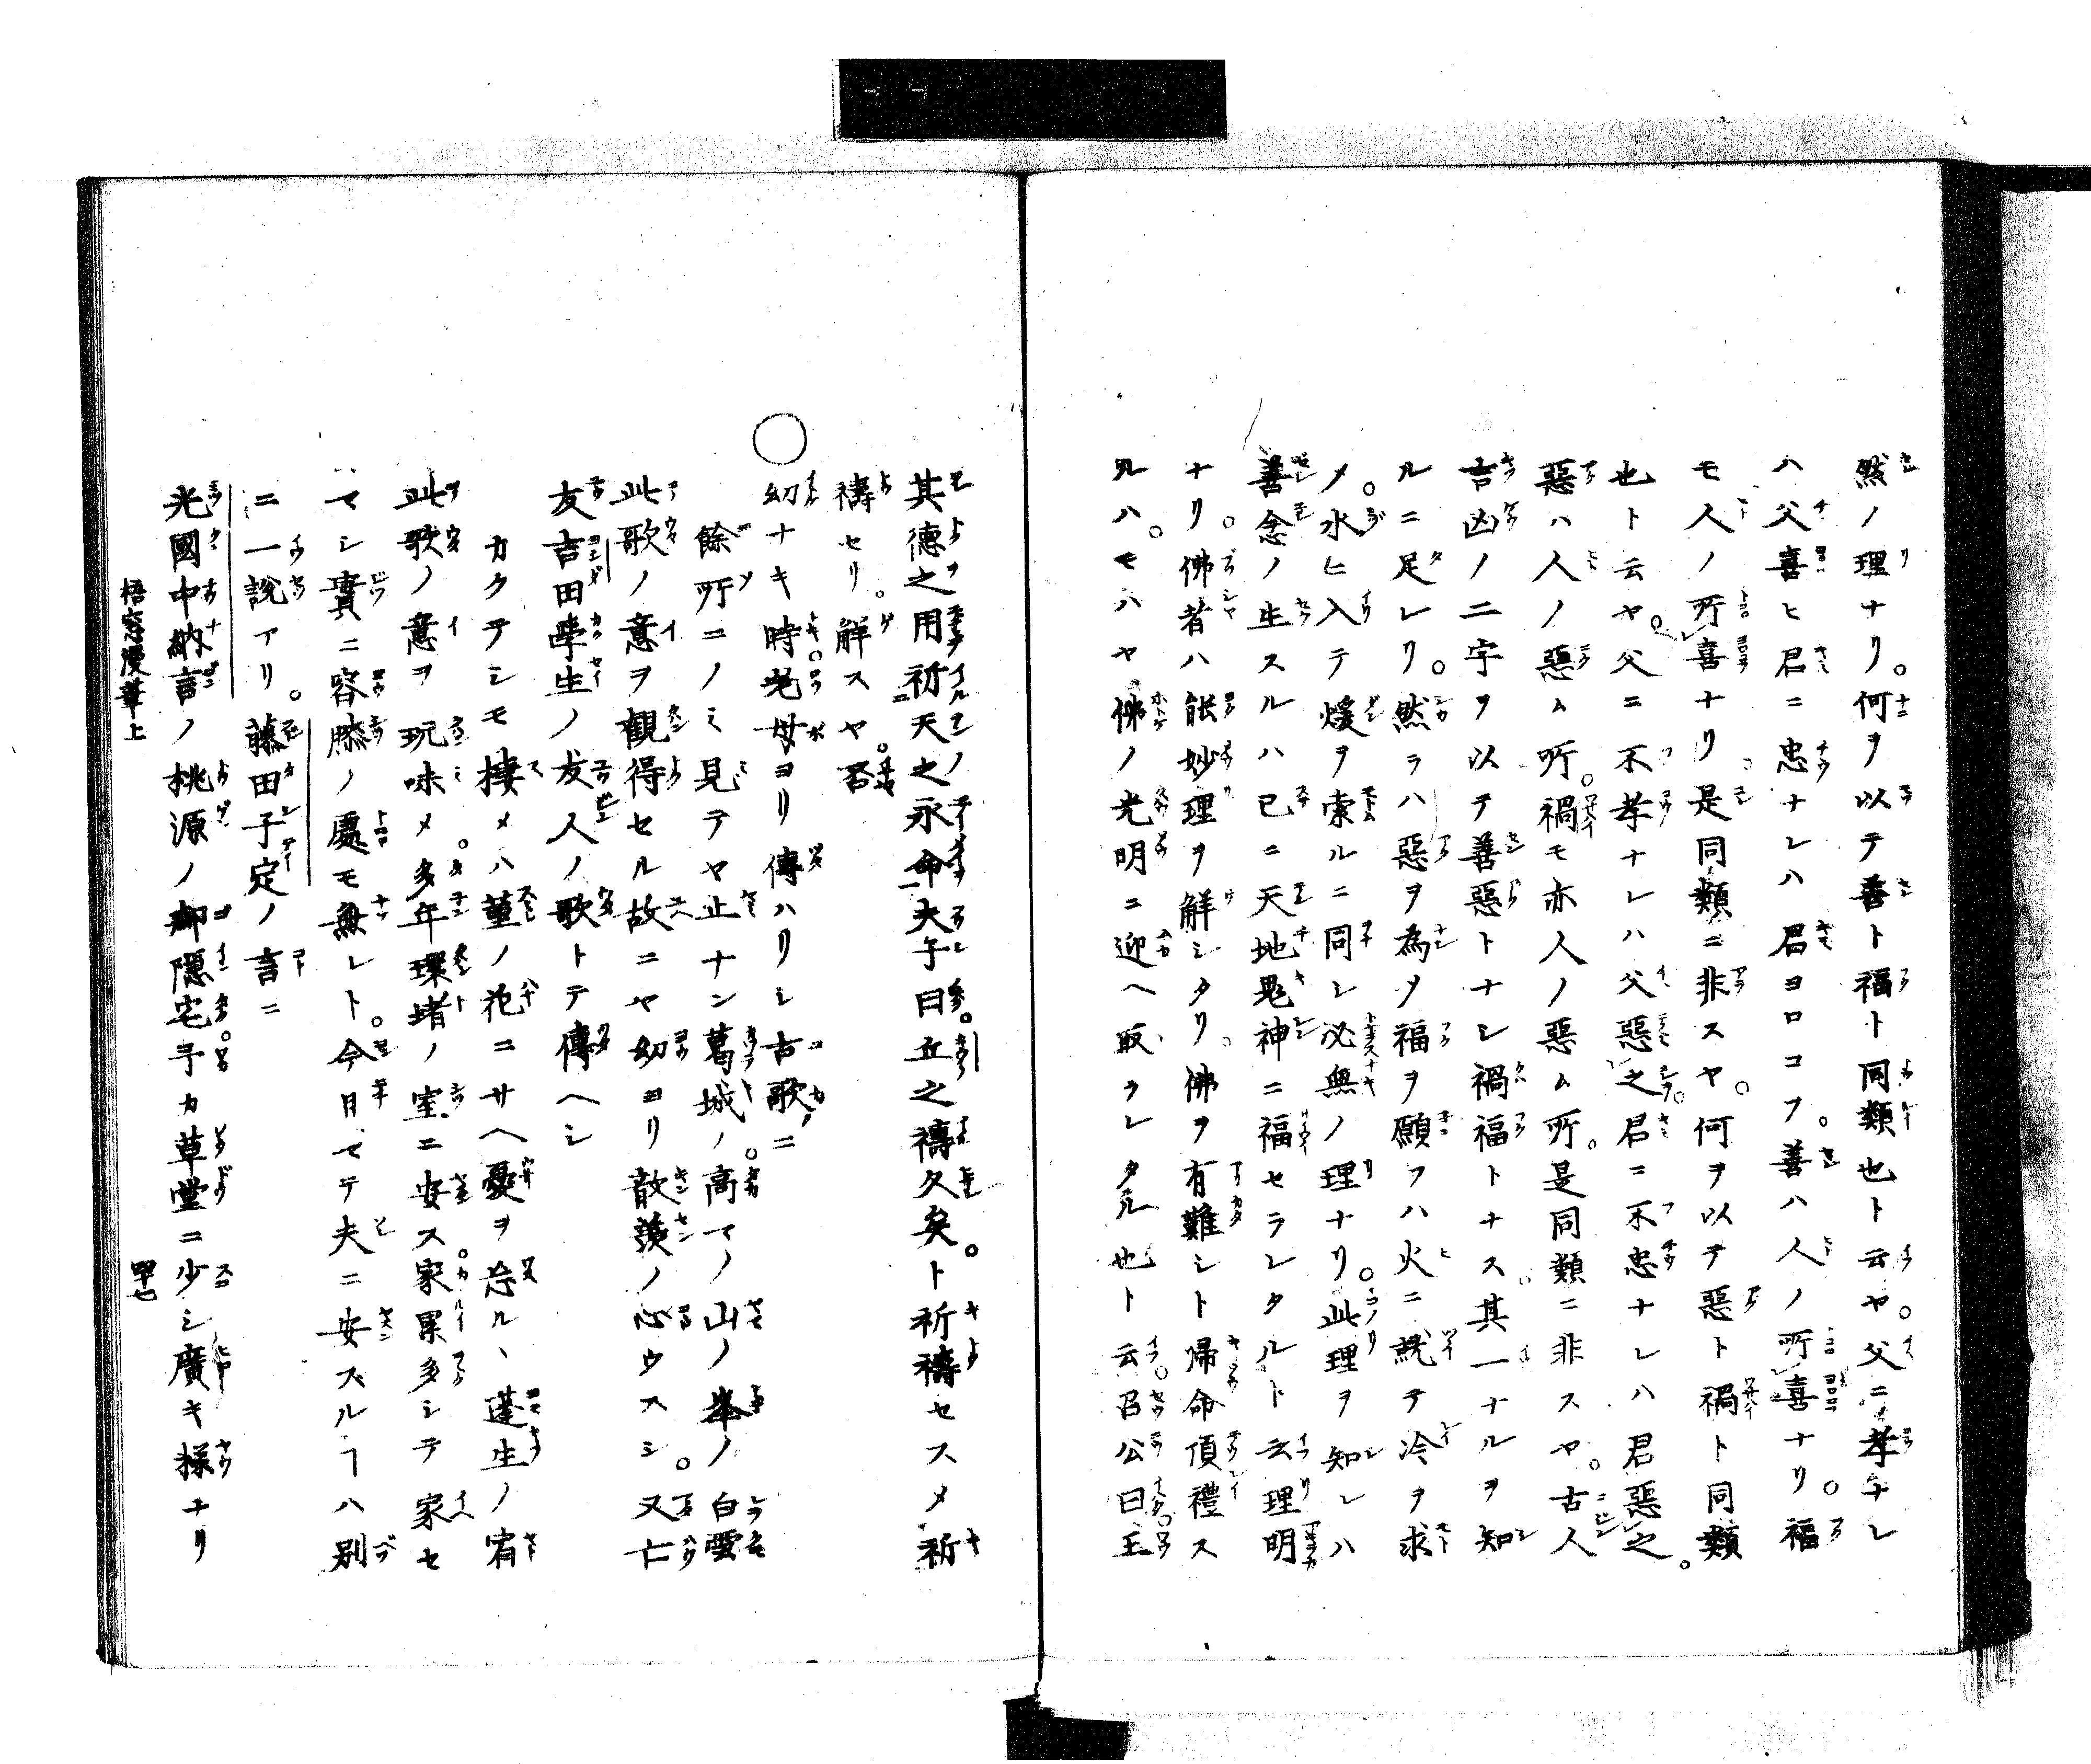 然ノ理ナリ。何ヲ以テ善ト福ト同類也ト云ヤ。父ニ孝ナレ
ハ父喜ヒ君ニ忠ナレハ君ヨロコフ。善ハ人ノ所喜ナリ。福
モ人ノ所喜ナリ。是同類ニ非スヤ。何ヲ以テ惡ト禍ト同類
也ト云ヤ。父ニ不孝ナレハ父惡之。君ニ不忠ナレハ君惡之。
惡ハ人ノ惡ム所。禍モ亦人ノ惡ム所。是同類ニ非スヤ。古人
吉凶ノ二字ヲ以テ善惡トナシ禍福トナス。其一ナルヲ知
ルニ足レリ。然ラハ惡ヲ為メ福ヲ願フハ火ニ就テ冷ヲ求
メ。水ヒ入テ煖ヲ索ルニ同シ必無ノ理ナリ。此理ヲ知レハ
善念ノ生スルハ已ニ天地鬼神ニ福セラレタルト云理明
ナリ。佛者ハ能妙理ヲ解シタリ。佛ヲ有難シト帰命頂禮ス
ルハ。モハヤ佛ノ光明ニ迎ヘ取ラレタル也ト云。召公曰王
其德之用祈天之永命夫子曰丘之禱久矣。ト祈禱セスメ祈
禱セリ。解スヤ。否
○幼ナキ時老母ヨリ傳ハリシ古歌ニ
餘所ニノミ見テヤ止ナン葛城ノ。高マノ山ノ峯ノ白雲
此歌ノ意ヲ觀得セル故ニヤ幼ヨリ散羨ノ心ウスシ。又亡
友吉田學生ノ友人ノ歌トテ傳ヘシ
カクテシモ棲メハ菫ノ花ニサヘ憂ヲ忘ルヽ蓬生ノ宿
此歌ノ意ヲ玩味メ。多年環堵ノ室ニ安ス。家累多シテ家セ
マシ實ニ容膝ノ處モ無レト。今日マテ夫ニ安スルヿハ別
ニ一說アリ。藤田子定ノ言ニ
光國中納言ノ桃源ノ御隠宅予カ草堂ニ少シ廣キ様ナリ
梧窓漫筆上 四十七